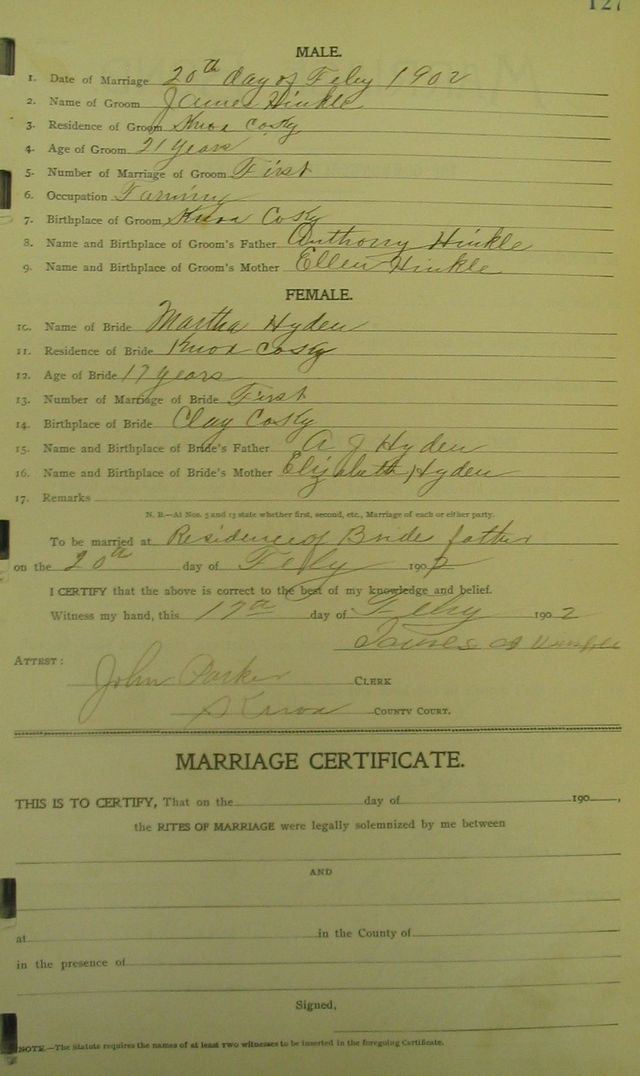 127
MALE.
1. Date of Marriage 20th day of Feby 1902
2. Name of Groom James Hinkle
3. Residence of Groom Knox Co Ky
4. Age of Groom 21 years
5. Number of Marriage of Groom First
6. Occupation Farming
7. Birthplace of Groom Knox Co Ky
8. Name and Birthplace of Groom's Father Anthony Hinkle
9. Name and Birthplace of Groom's Mother Ellen Hinkle
FEMALE.
10. Name of Bride Martha Hyden
11. Residence of Bride Knox Co Ky
12. Age of Bride 17 years
13. Number of Marriage of Bride First
14. Birthplace of Bride Clay Co Ky
15. Name and Birthplace of Bride's Father A J Hyden
16. Name and Birthplace of Bride's Mother Elizabeth Hyden
17. Remarks
N. B.—At Nos. 5 and 13 state whether first, second, etc., Marriage of each or either party.
To be married at Residence of Bride father
on the 20th day of Feby 1902
I CERTIFY that the above is correct to the best of my knowledge and belief.
Witness my hand, this 17th day of Feby 1902
James Hinkle
ATTEST:
John Parker CLERK
Knox COUNTY COURT.
MARRIAGE CERTIFICATE.
THIS IS TO CERTIFY, That on the day of 190 ,
the RITES OF MARRIAGE were legally solemnized by me between
AND
at in the County of
in the presence of
Signed,
NOTE.—The Statute requires the names of at least two witnesses to be inserted in the foregoing Certificate.